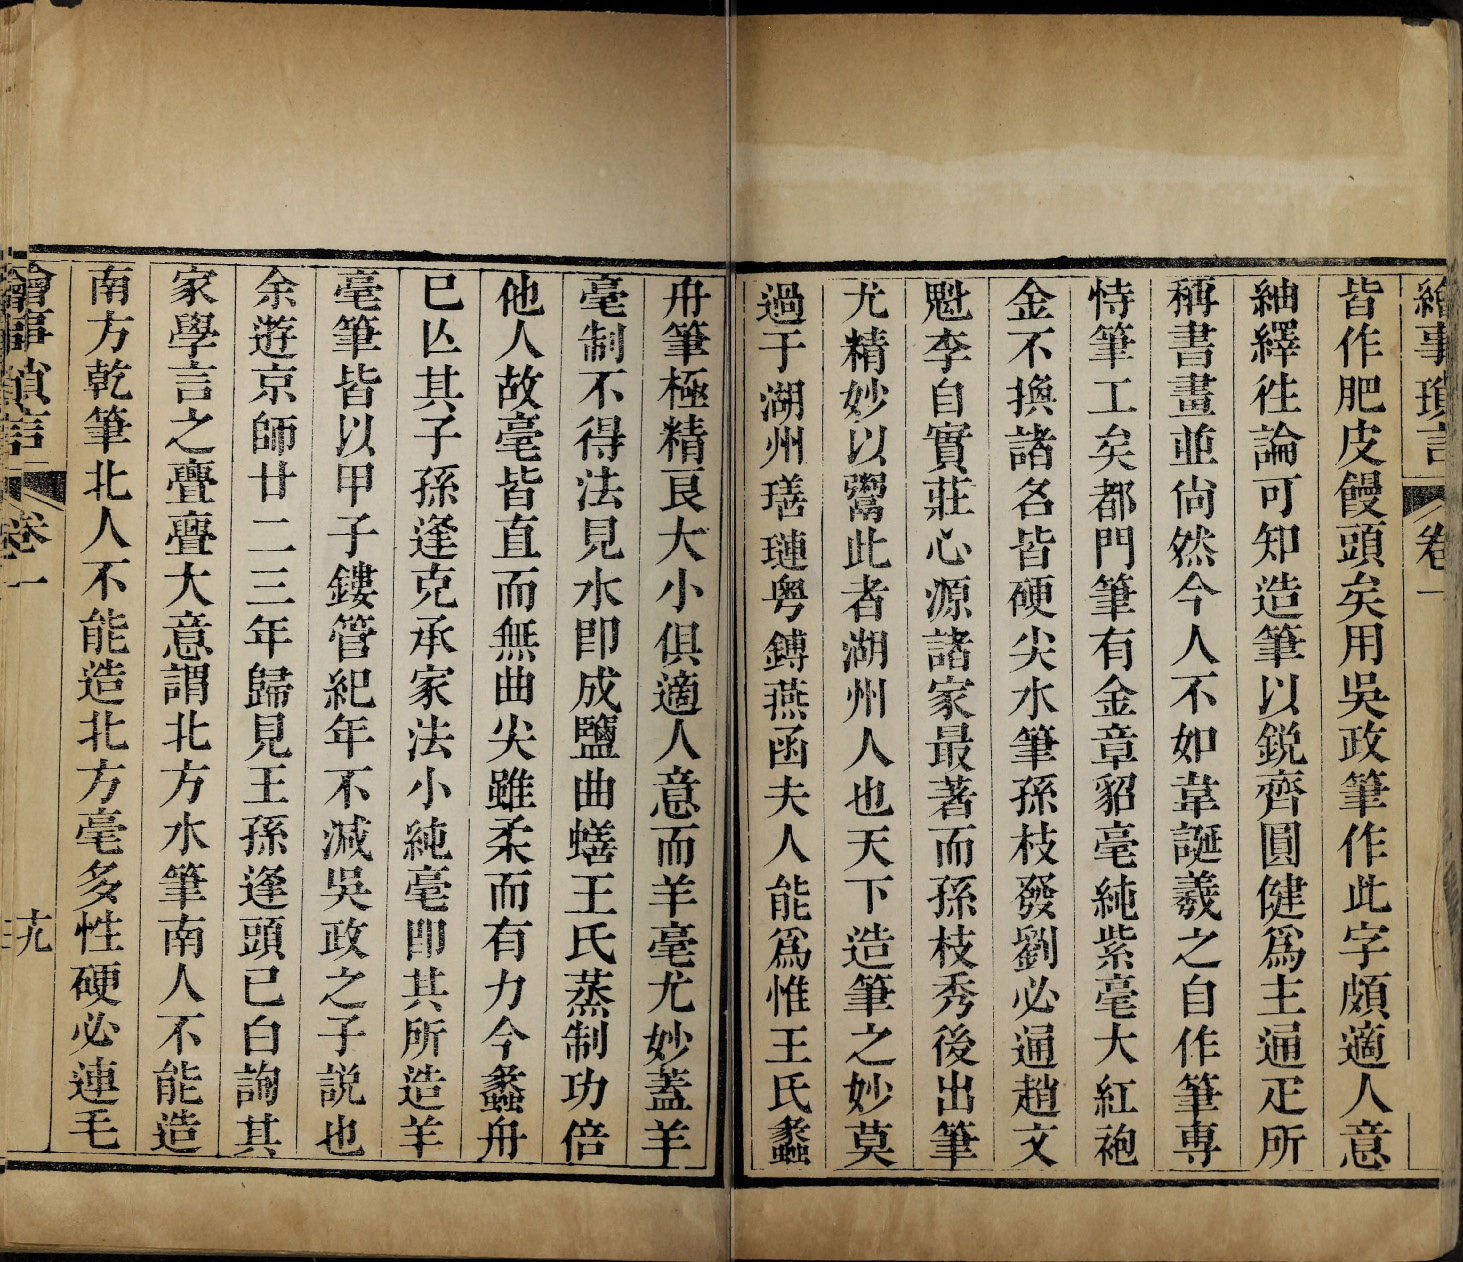 繪事瑣言 卷一
皆作肥皮饅頭矣用吳政筆作此字頗適人意
紬繹徃論可知造筆以鋭齊圓健爲主通疋所
稱書畫並尙然今人不如韋誕羲之自作筆專
恃筆工矣都門筆有金章貂毫純紫毫大紅袍
金不換諸名皆硬尖水筆孫枝發劉必通趙文
魁李自實莊心源諸家最著而孫枝秀後出筆
尤精妙以鬻此者湖州人也天下造筆之妙莫
過于湖州璿璉粤鎛燕函夫人能爲惟王氏蠡
舟筆極精良大小俱適人意而羊毫尤妙蓋羊
毫制不得法見水卽成鹽曲蟮王氏蒸制功倍
他人故毫皆直而無曲尖雖柔而有力今蠡舟
已亾其子孫逢克承家法小純毫卽其所造羊
毫筆皆以甲子鏤管紀年不減吳政之子説也
余遊京師廿二三年歸見王孫逢頭已白詢其
家學言之亹亹大意謂北方水筆南人不能造
南方乾筆北人不能造北方毫多性硬必連毛
繪事瑣言 卷一